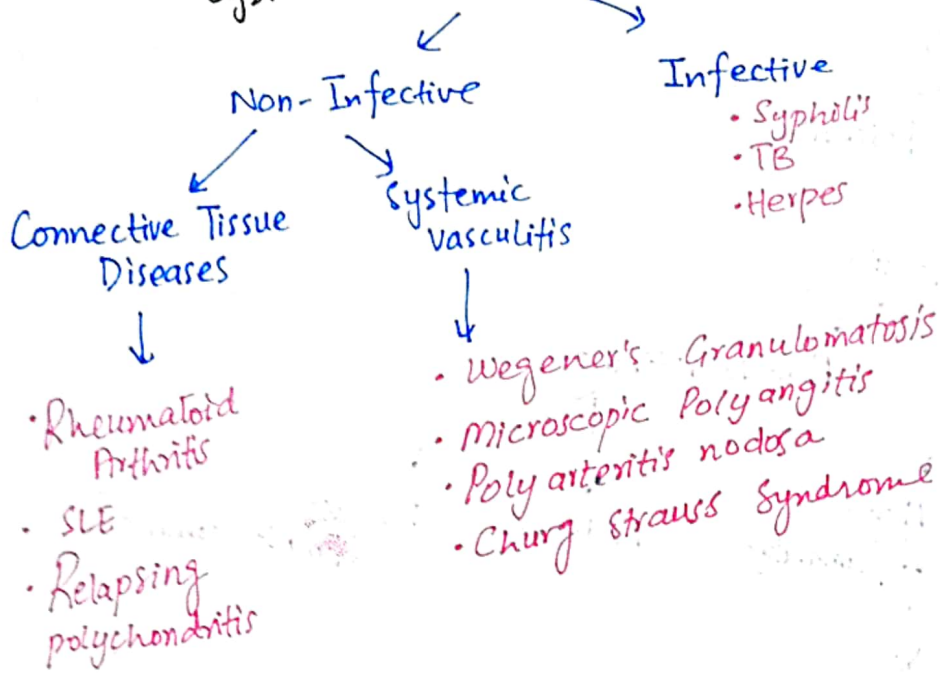 Non-Infective
Infective
• Syphilis
• TB
• Herpes
Connective Tissue
Diseases
Systemic
vasculitis
• Rheumatoid
Arthritis
• SLE
• Relapsing
polychondritis
• Wegener's Granulomatosis
• Microscopic Polyangitis
• Polyarteritis nodosa
• Churg Strauss Syndrome